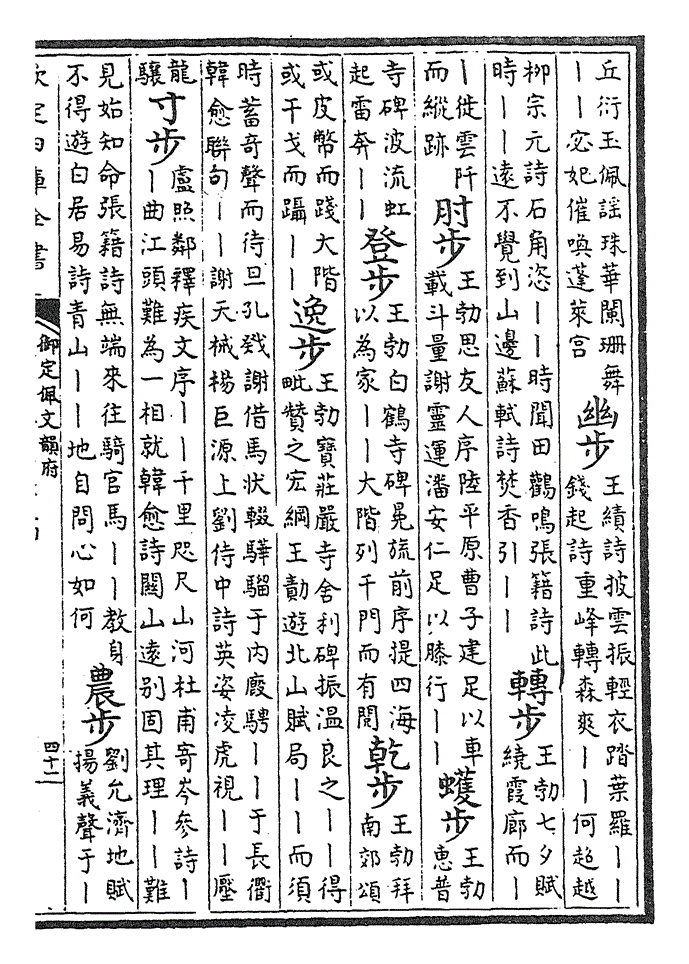 丘衍玉佩謡珠華闌珊舞
丨丨宓妃催喚蓬萊宫
幽步
王績詩披雲振輕衣踏葉羅丨丨
錢起詩重峰轉森爽丨丨何超越
柳宗元詩石角恣丨丨時聞田鸛鳴張籍詩此
時丨丨逺不覺到山邊蘇軾詩焚香引丨丨
轉步
王勃七夕賦
繞霞廊而丨
丨徙雲阡
而縱跡
肘步
王勃思友人序陸平原曹子建足以車
載斗量謝靈運潘安仁足以膝行丨丨
蠖步
王勃
惠普
寺碑波流虹
起雷奔丨丨
登步
王勃白鶴寺碑冕旒前序提四海
以為家丨丨大階列千門而有閲
乾步
王勃拜
南郊頌
或皮幣而踐大階
或干戈而躡丨丨
逸步
王勃寶莊嚴寺舍利碑振温良之丨丨得
毗贊之宏綱王勣遊北山賦局丨丨而須
時蓄奇聲而待旦孔戣謝借馬状輟驊騮于内廄騁丨丨于長衢
韓愈聮句丨丨謝天械楊巨源上劉侍中詩英姿凌虎視丨丨壓
龍
驤
寸步
盧照鄰釋疾文序丨丨千里咫尺山河杜甫寄岑參詩丨
丨曲江頭難為一相就韓愈詩闗山逺别固其理丨丨難
見始知命張籍詩無端來往騎官馬丨丨教身
不得遊白居易詩青山丨丨地自問心如何
農步
劉允濟地賦
揚義聲于丨
欽定四庫全書
御定佩文韻府
四十二